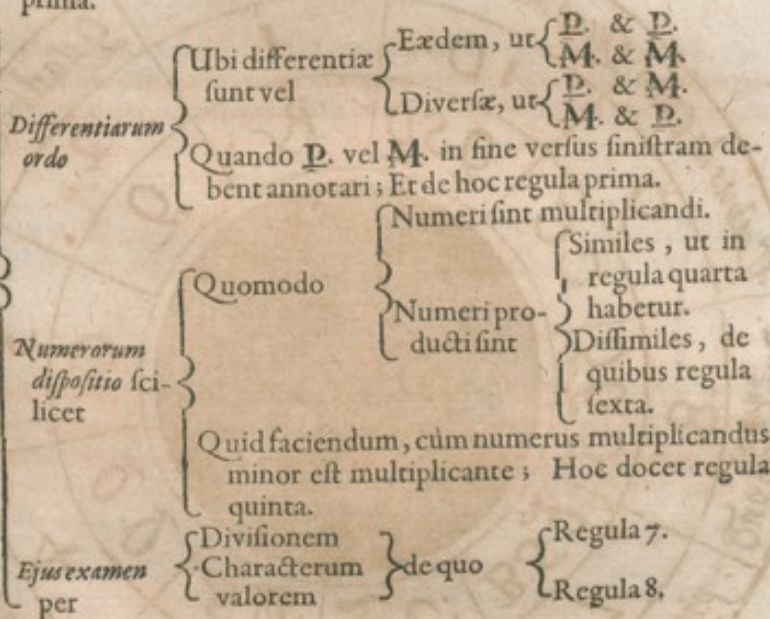 prima.
Differentiarum
ordo
Ubi differentiæ
ſunt vel
Eædem, ut
P. & P.
M. & M.
Diverſæ, ut
P. & M.
M. & P.
Quando P. vel M. in fine verſus ſiniſtram de-
bent annotari; Et de hoc regula prima.
Numerorum
diſpoſitio ſci-
licet
Quomodo
Numeri ſint multiplicandi.
Numeri pro-
ducti ſint
Similes, ut in
regula quarta
habetur.
Diſſimiles, de
quibus regula
ſexta.
Quid faciendum, cùm numerus multiplicandus
minor eſt multiplicante; Hoc docet regula
quinta.
Ejus examen
per
Diviſionem
Characterum
valorem
de quo
Regula 7.
Regula 8.